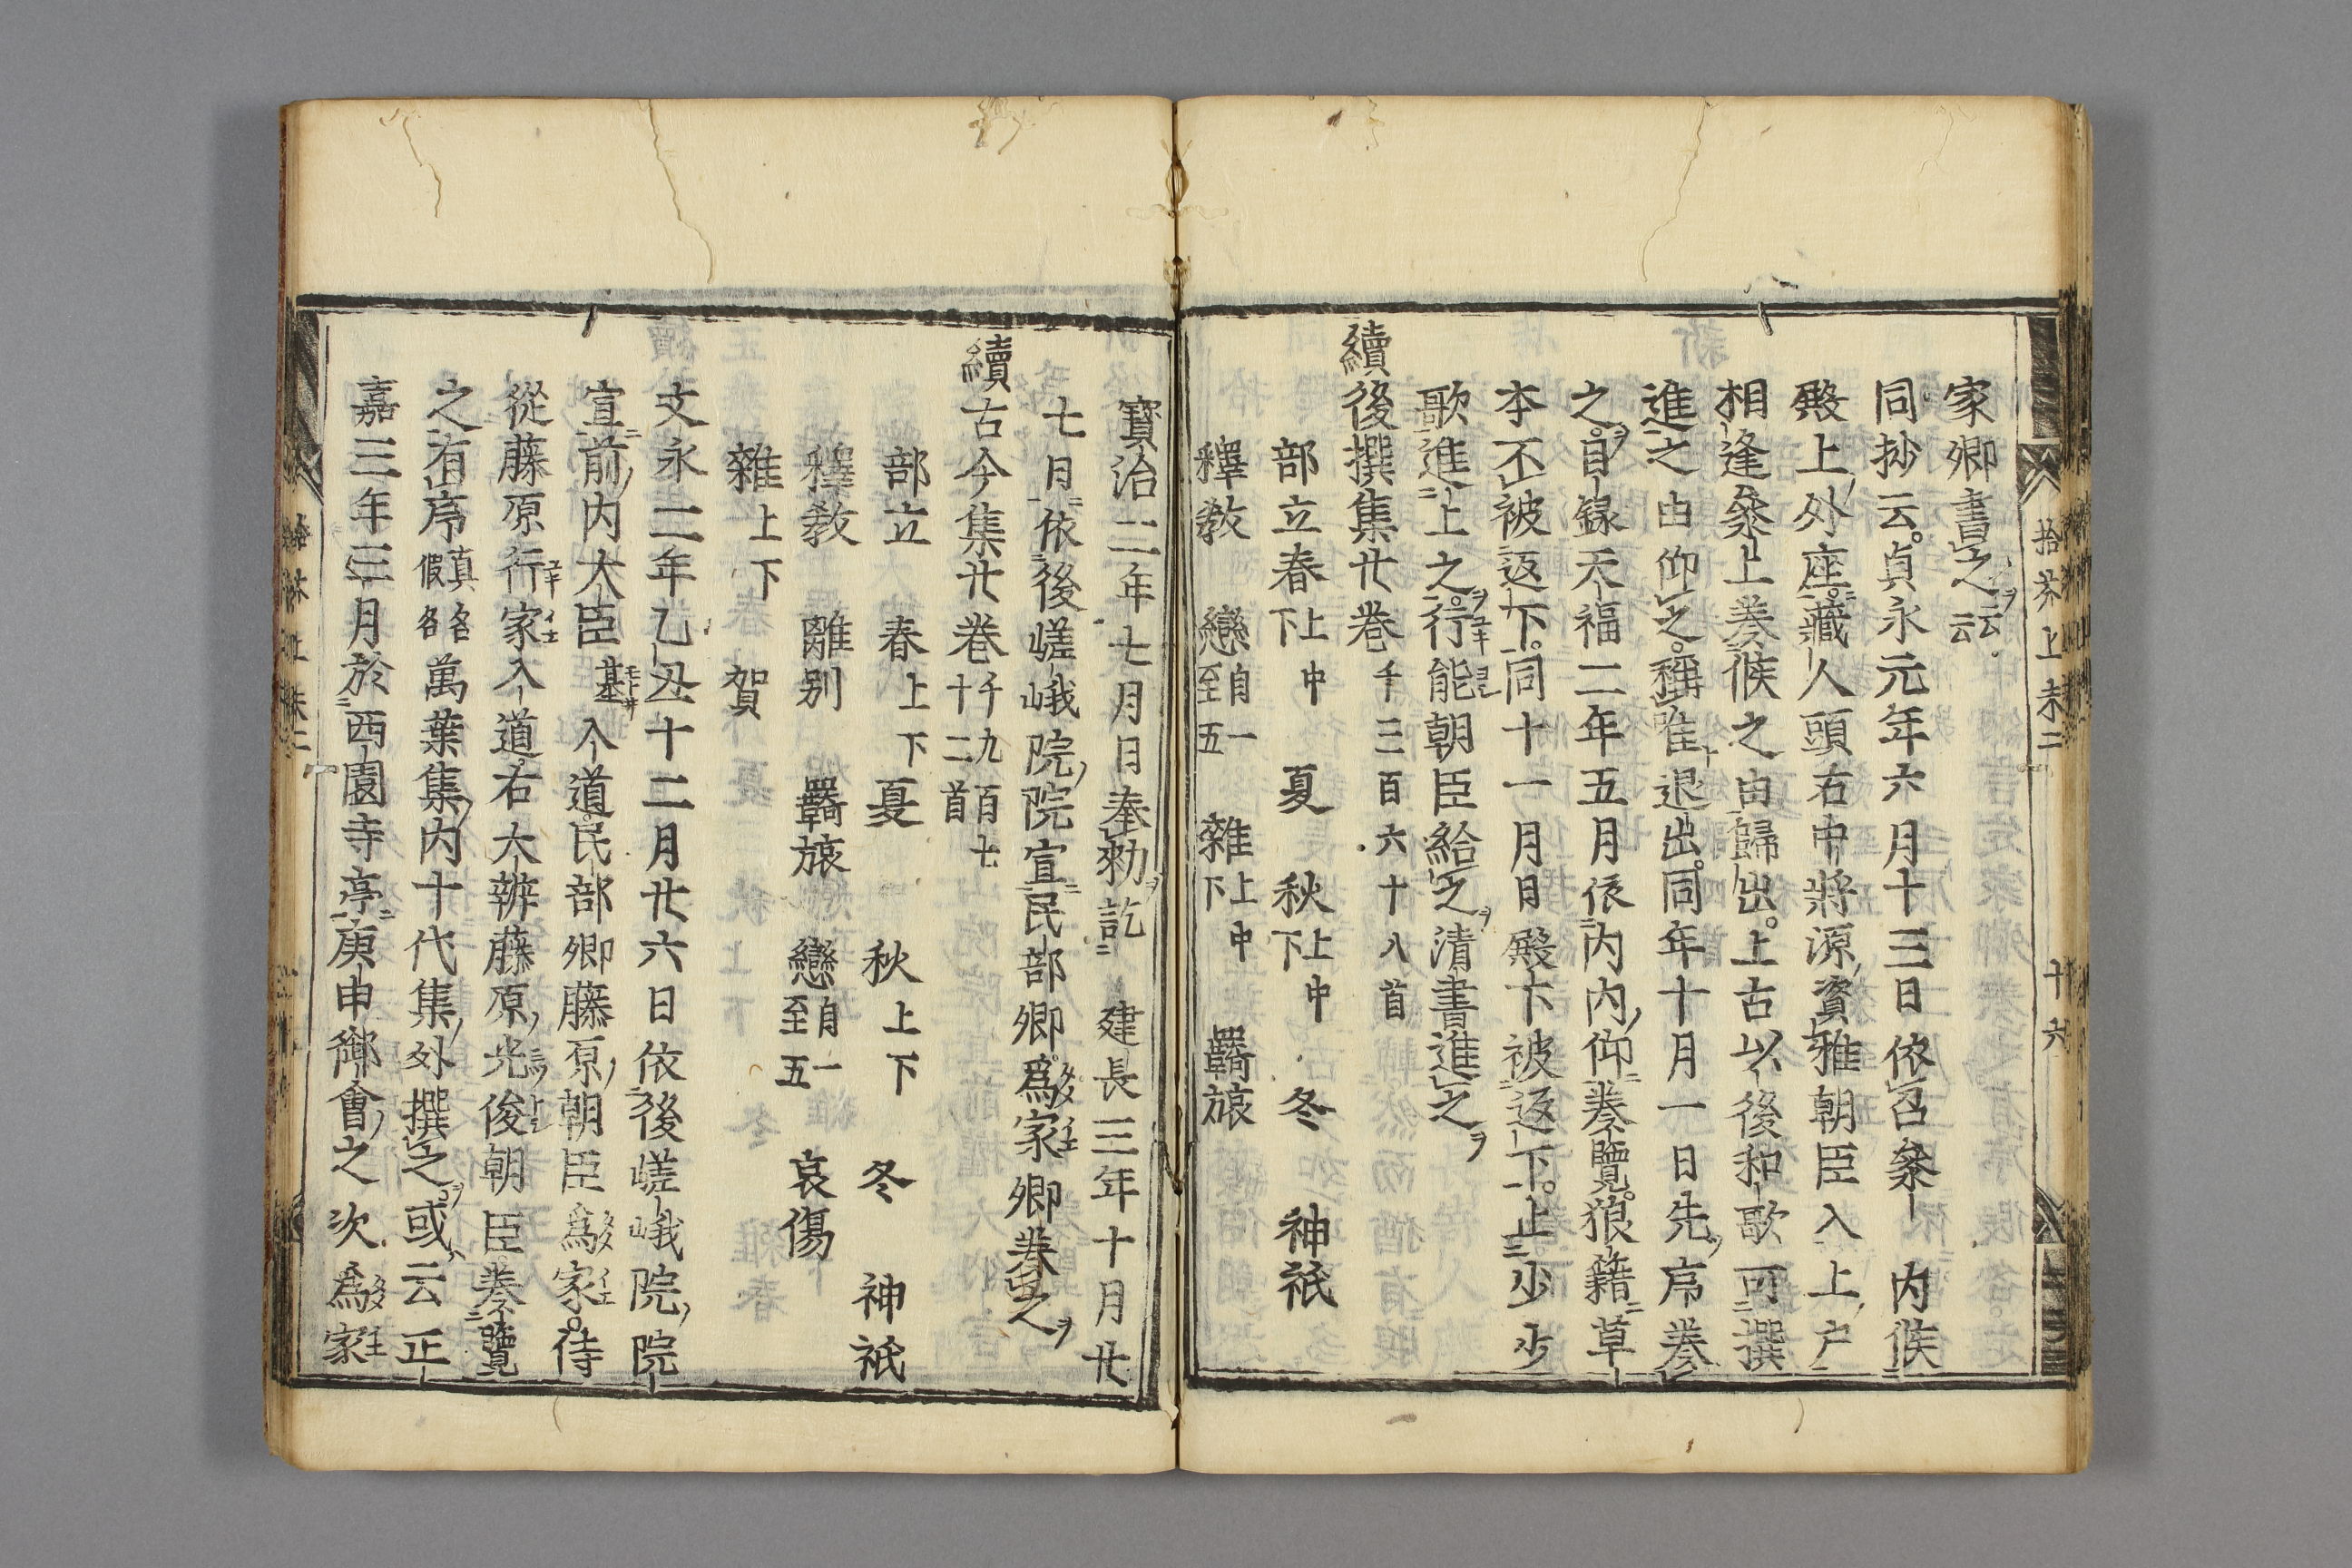 拾芥上末二 十六
家卿書之云云
同抄云貞永元年六月十三日依召参内候
殿上外座藏人頭右中將源資雅朝臣入上戸
相逢参上奏候之由歸出上古以後和歌可撰
進之由仰之稱唯退出同年十月一日先序奏
之目錄天福二年五月依内内仰奏覽狼籍草
本不被返下同十一月日殿下被返下止少少
歌進上之行能朝臣給之清書進之
續後撰集廿卷千三百六十八首
部立春上中下 夏 秋上中下 冬 神祇
釋教 戀自一至五 雜上中下 羈旅
寶治二年七月日奉勅訖 建長三年十月廿
七月依後嵯峨院院宣民部卿爲家卿奏之
續古今集廿卷千九百七十二首
部立 春上下 夏 秋上下 冬 神祇
釋教 離別 羈旅 戀自一至五 哀傷
雜上下 賀
文永二年乙丑十二月廿六日依後嵯峨院院
宣前内大臣基入道民部卿藤原朝臣爲家侍
從藤原行家入道右大辨藤原光俊朝臣奏覽
之有序真名假名萬葉集内十代集外撰之或云正
嘉三年三月於西園寺亭庚申御會之次爲家